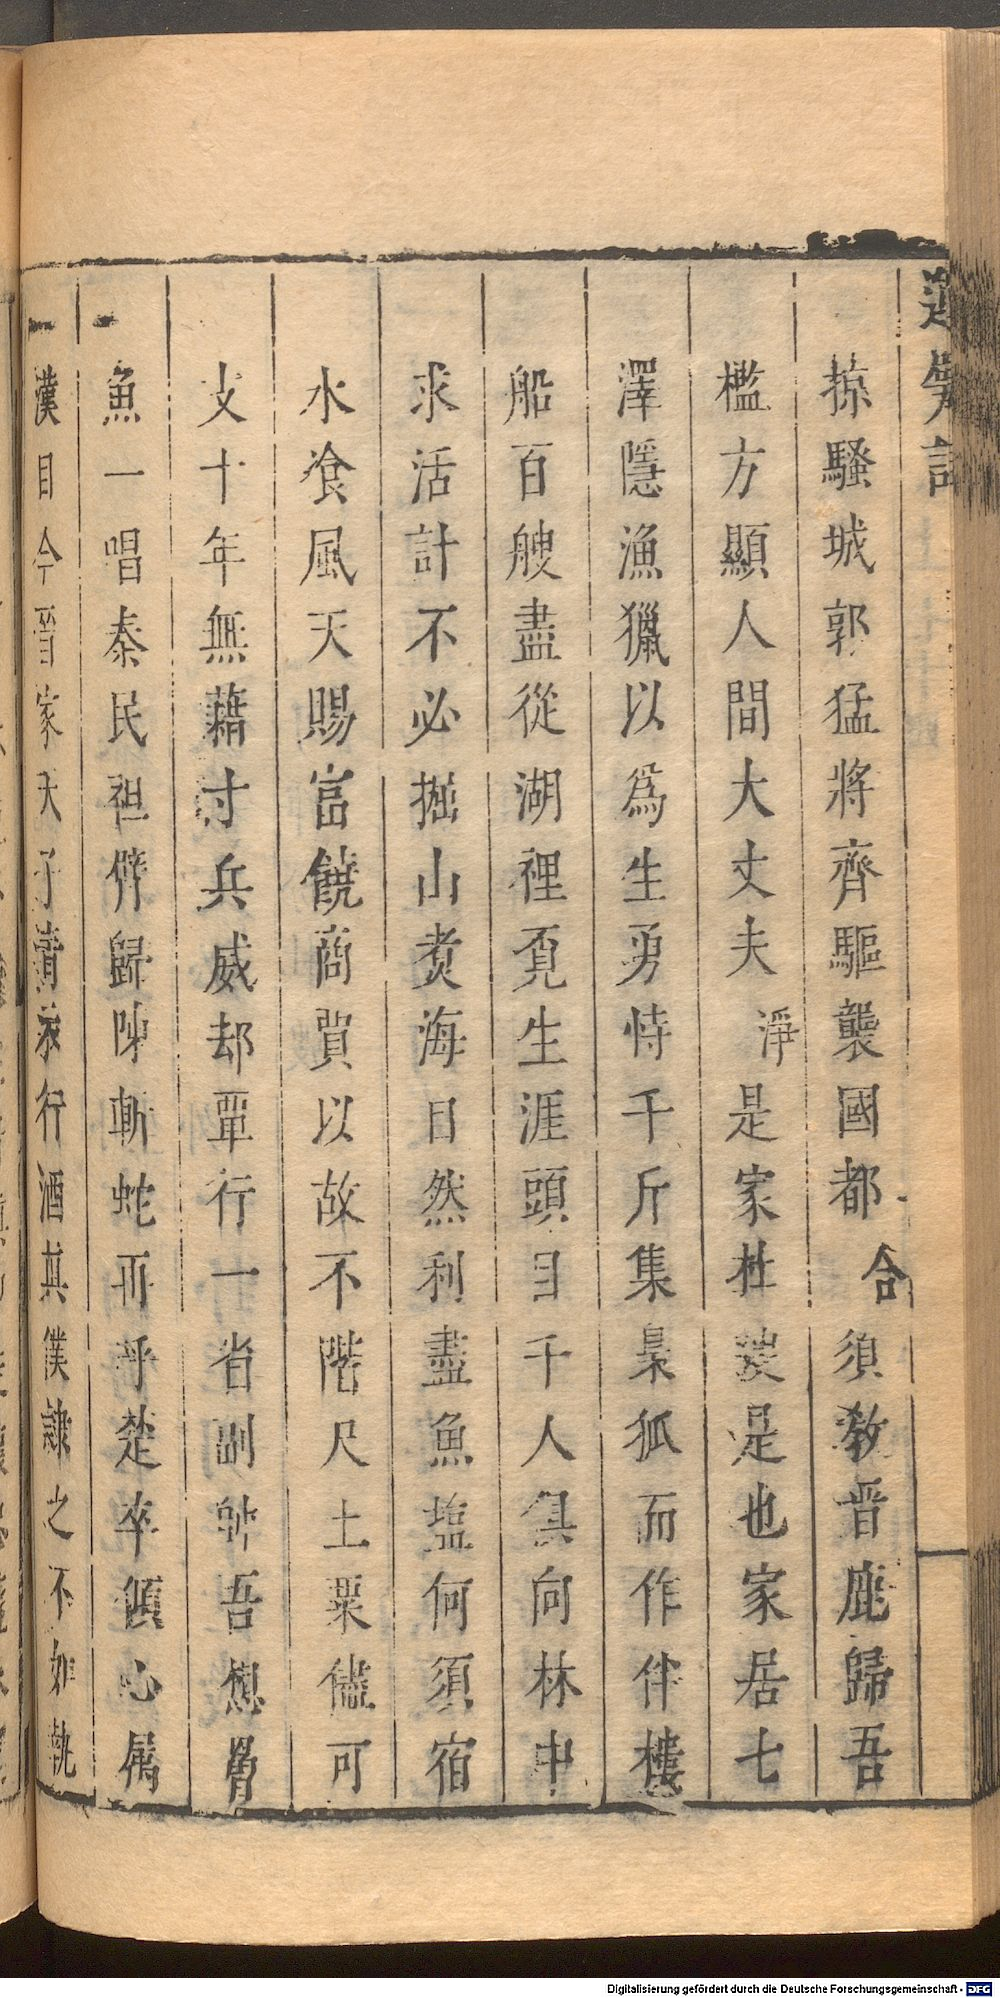 掠騷城郭猛將齊驅襲國都合須教晉鹿歸吾
檻方顯人間大丈夫淨是家杜弢是也家居七
澤隱漁獵以為生勇恃千斤集梟狐而作伴樓
船百艘盡從湖裡覓生涯頭目千人俱向林中
求活計不必掘山煑海日然利盡魚塩何須宿
水飡風天賜富饒商賈以故不階尺土粟儘可
支十年無藉寸兵威却單行一省副帥吾想胥
魚一唱秦民袒臂歸陳斬蛇再呼楚卒傾心屬
漢目今晉家天子青衣行酒其僕隷之不如執
Digitalisierung gefördert durch die Deutsche Forschungsgemeinschaft - DFG